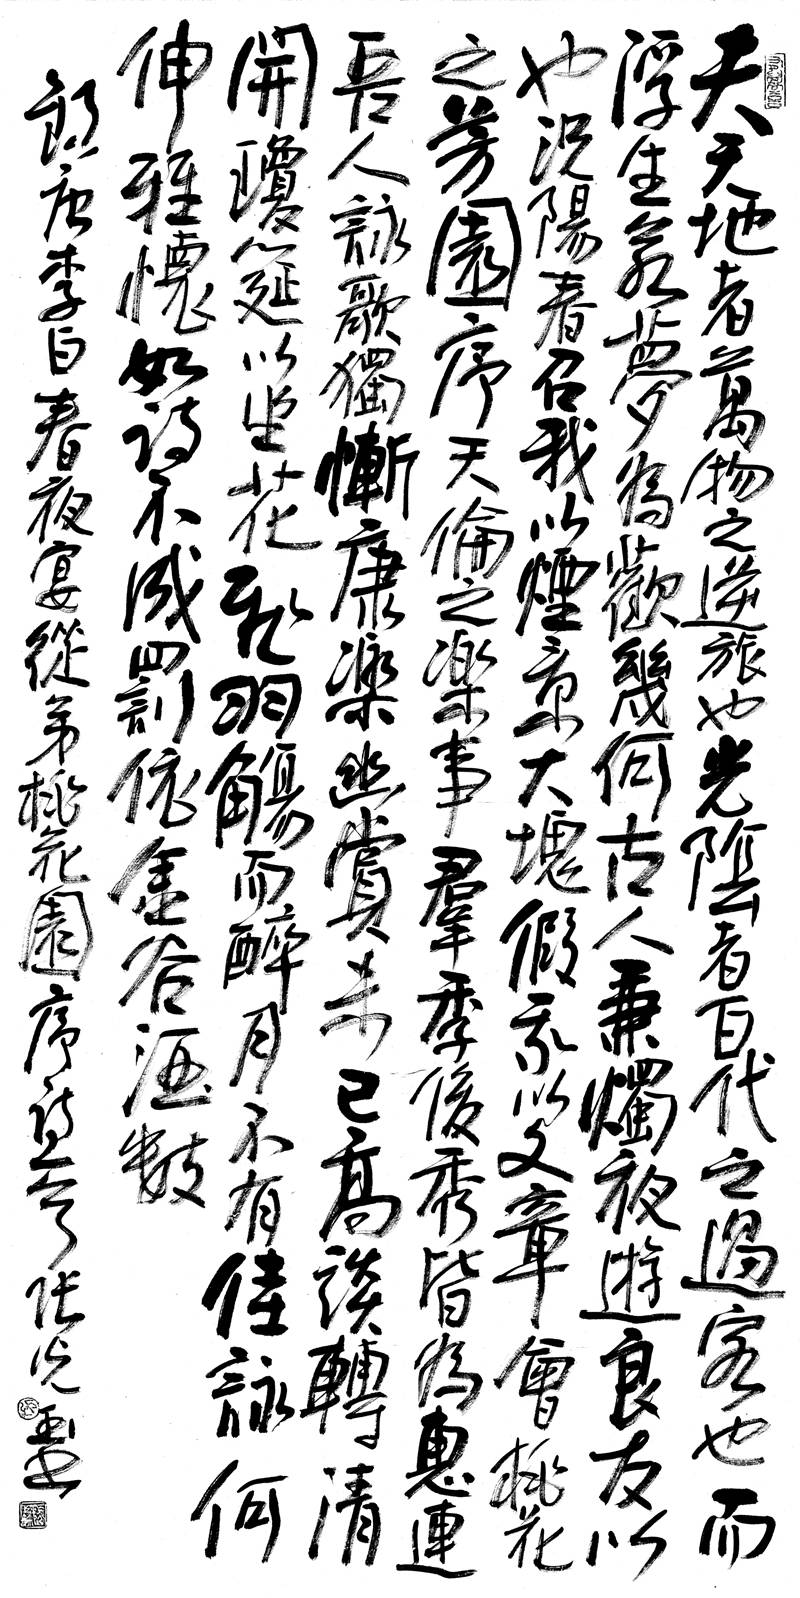 夫天地者萬物之逆旅也光陰者百代之過客也而
浮生若夢為歡幾何古人秉燭夜遊良友以
也況陽春召我以煙景大塊假我以文章會桃花
之芳園序天倫之樂事羣季俊秀皆為惠連
吾人詠歌獨慚康樂幽賞未已高談轉清
開瓊筵以坐花飛羽觴而醉月不有佳詠何
伸雅懷如詩不成罰依金谷酒數
錄唐李白春夜宴從弟桃花園序詩 張光